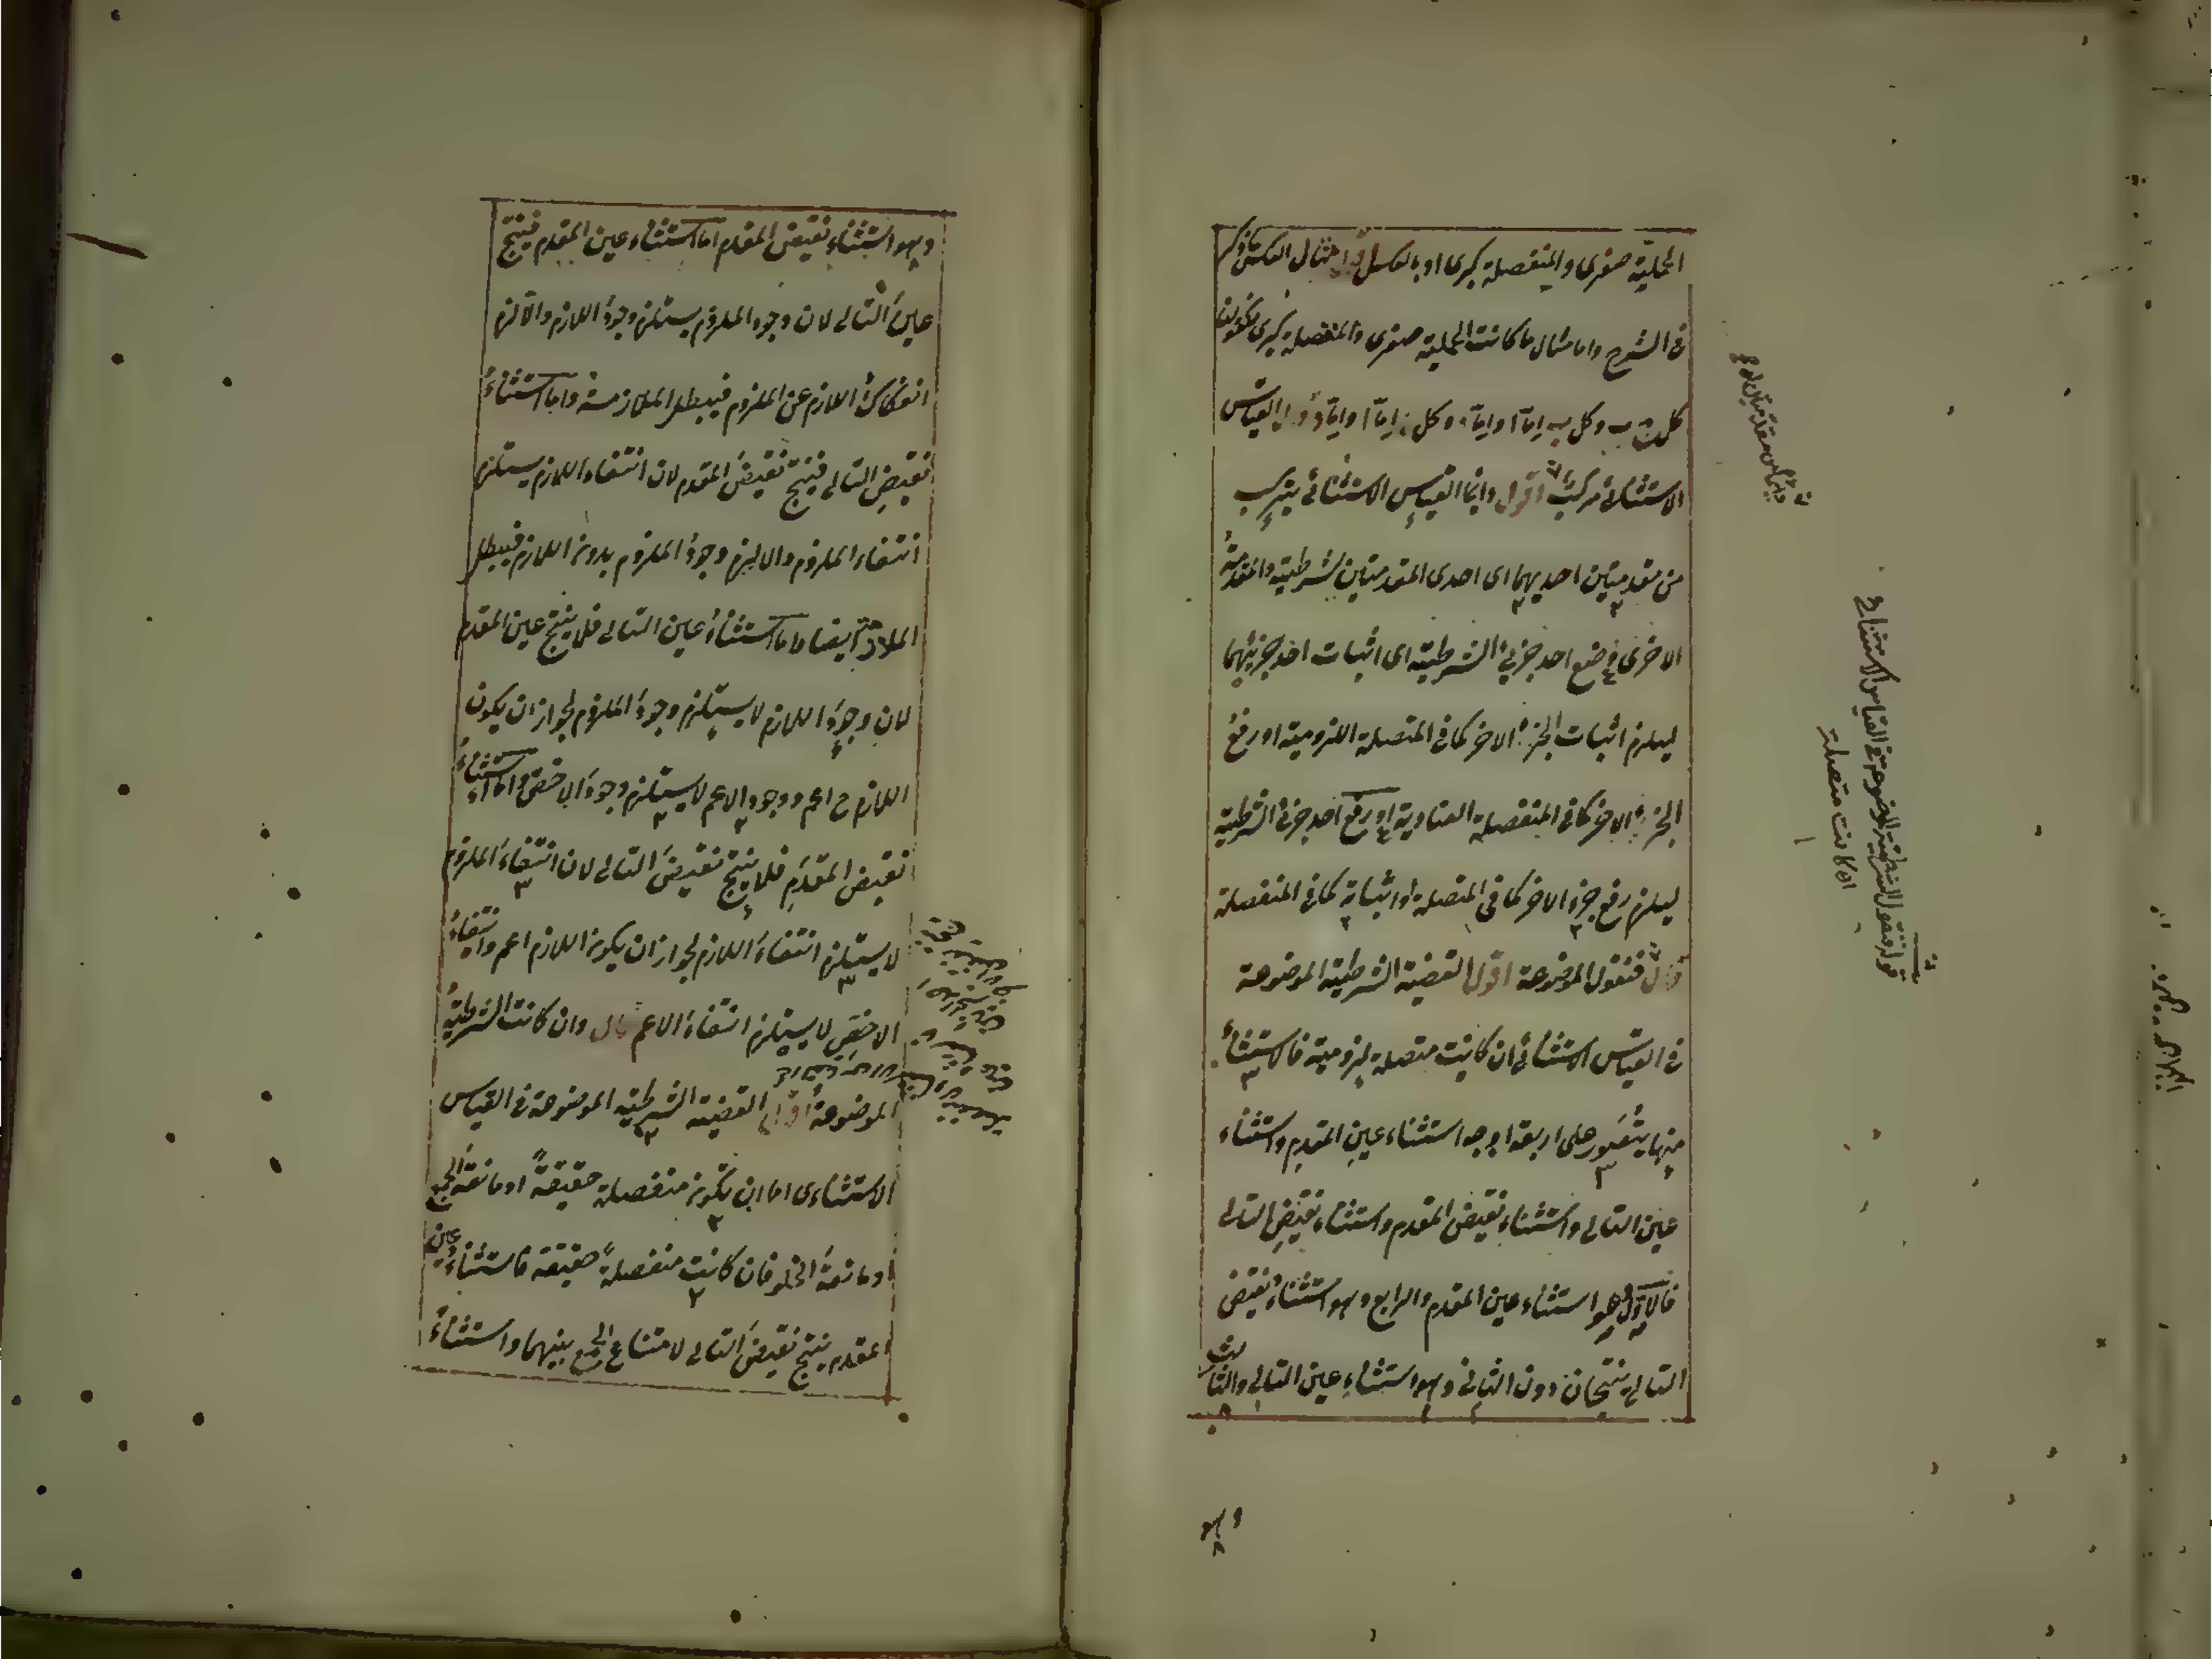 الحملية صغرى والمنفصلة كبرى او بالعكس مثال العكس مذكور
فى الشرح واما مثال ما كانت الحملية صغرى والمنفصلة كبرى فكقولنا
كل ب وكل ب اما ا واما وكل اما ا واما القياس
الاستثنائى مركب اقول وانما القياس الاستثنائى يتركب
من مقدمتين احديهما اى احدى المقدمتين شرطية والمقدمة
الاخرى وضع احد جزئى الشرطية اى اثبات احد جزئيهما
ليلزم اثبات الجزء الاخر كما فى المتصلة اللزومية او رفع
الجزء الاخر كما فى المنفصلة العنادية او رفع احد جزئى الشرطية
ليلزم رفع جزء الاخر كما فى المتصلة او اثباته كما فى المنفصلة
قال فنقول الموضوعة اقول القضية الشرطية الموضوعة
فى القياس الاستثنائى ان كانت متصلة لزومية فالاستثناء
منها يتصور على اربعة اوجه استثناء عين المقدم واستثناء
عين التالى واستثناء نقيض المقدم واستثناء نقيض التالى
فالاول وهو استثناء عين المقدم والرابع وهو استثناء نقيض
التالى ينتجان دون الثانى وهو استثناء عين التالى والثالث
وهو
قوله فنقول الشرطية الموضوعة فى القياس الاستثنائى
ان كانت متصلة
وهو استثناء نقيض المقدم اما استثناء عين المقدم فينتج
عين التالى لان وجود الملزوم يستلزم وجود اللازم والا لزم
انفكاك اللازم عن الملزوم فيبطل الملازمة واما استثناء
نقيض التالى فينتج نقيض المقدم لان انتفاء اللازم يستلزم
انتفاء الملزوم والا لزم وجود الملزوم بدون اللازم فيبطل
الملازمة ايضا واما استثناء عين التالى فلا ينتج عين المقدم
لان وجود اللازم لا يستلزم وجود الملزوم لجواز ان يكون
اللازم ح اعم ووجود الاعم لا يستلزم وجود الاخص واما استثناء
نقيض المقدم فلا ينتج نقيض التالى لان انتفاء الملزوم
لا يستلزم انتفاء اللازم لجواز ان يكون اللازم اعم وانتفاء
الاخص لا يستلزم انتفاء الاعم قال وان كانت الشرطية
الموضوعة اقول القضية الشرطية الموضوعة فى القياس
الاستثناءى اما ان تكون منفصلة حقيقة او مانعة الجمع
او مانعة الخلو فان كانت منفصلة حقيقة فاستثناء عين
المقدم ينتج نقيض التالى لامتناع الجمع بينهما واستثناء